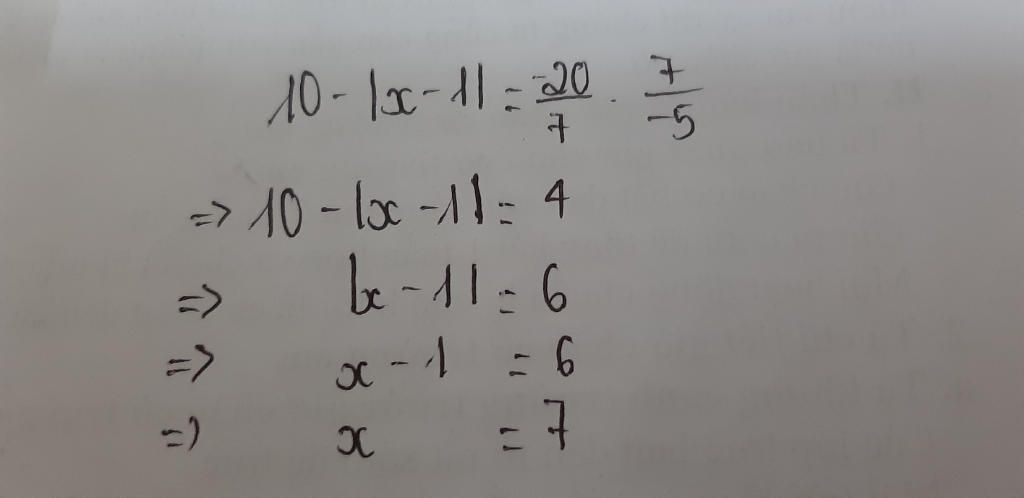 10 - |x - 1| = -20/7 · 7/-5
=> 10 - |x - 1| = 4
=> |x - 1| = 6
=> x - 1 = 6
=> x = 7